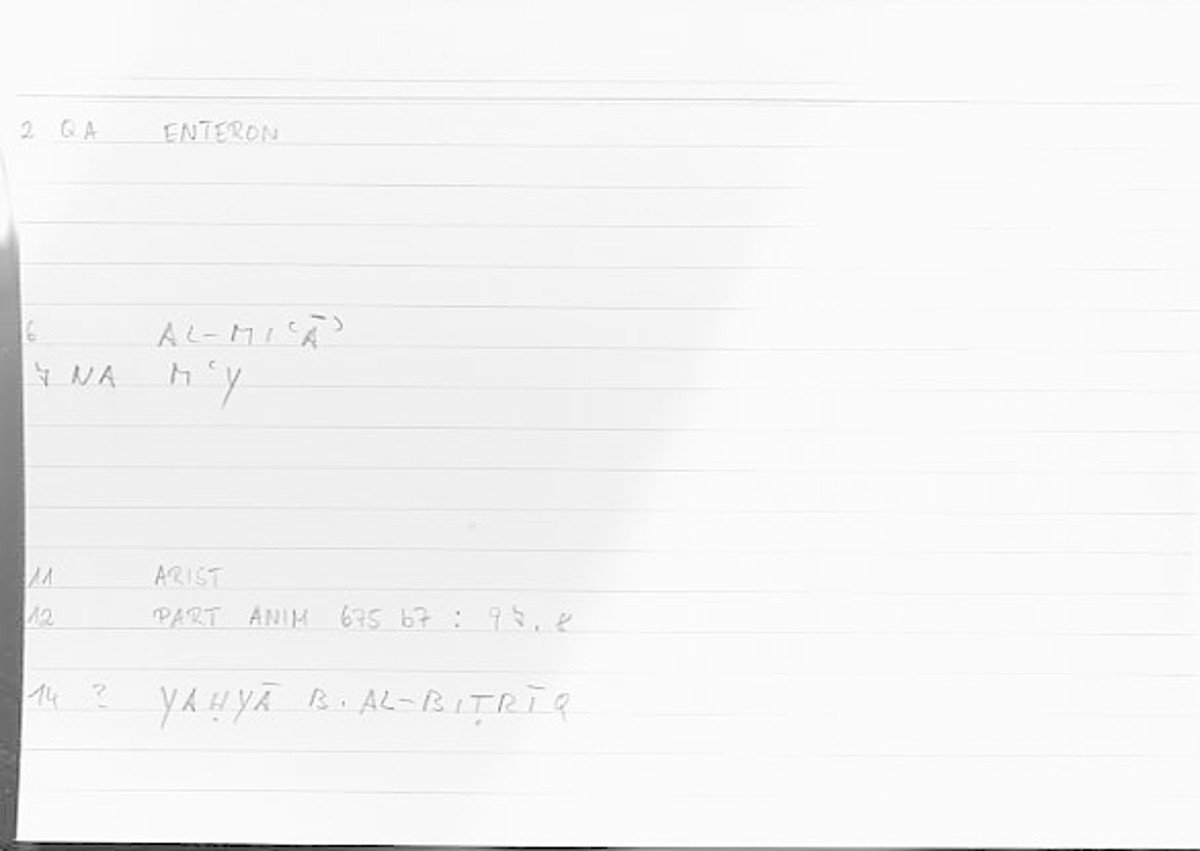 2 QA ENTERON
6 AL-MIʿĀʾ
7 NA MʿY
11 ARIST
12 PART ANIM 675 b7 : 97.8
14 ? YAḤYĀ B. AL-BIṬRĪQ